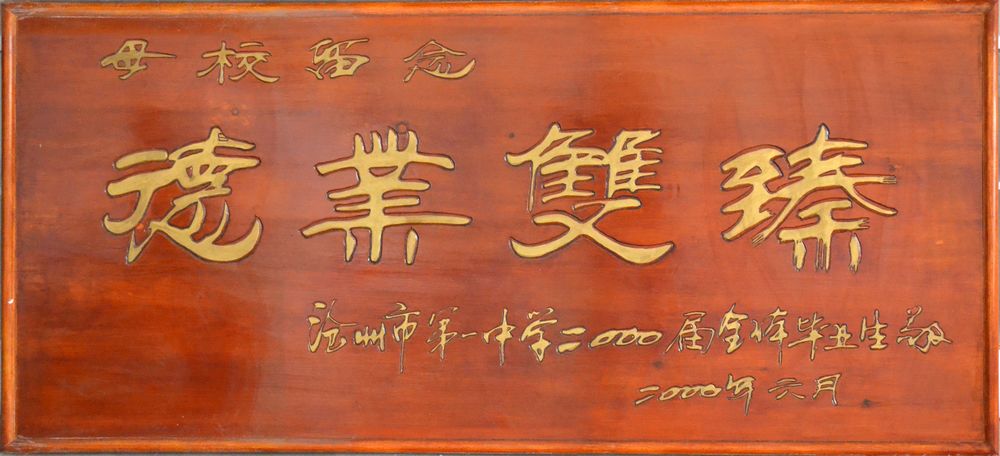 母校留念
德業雙臻
沧州市第一中学二000届全体毕业生敬
二000年六月